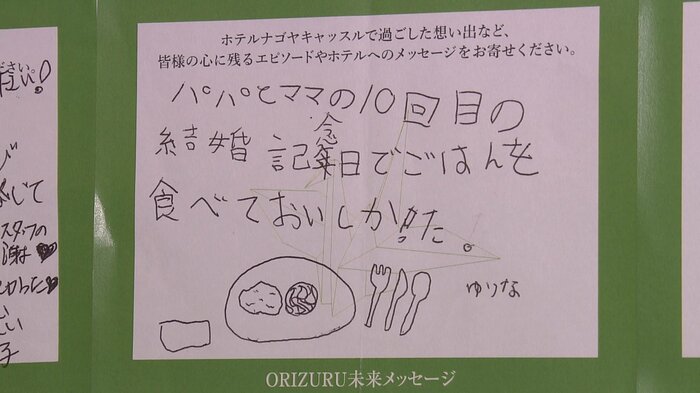 ホテルナゴヤキャッスルで過ごした想い出など、
皆様の心に残るエピソードやホテルへのメッセージをお寄せください。
パパとママの10回目の
結婚記念日でごはんを
食べておいしかった。
ゆりな
ORIZURU未来メッセージ
ださい。
じて
スタッフの